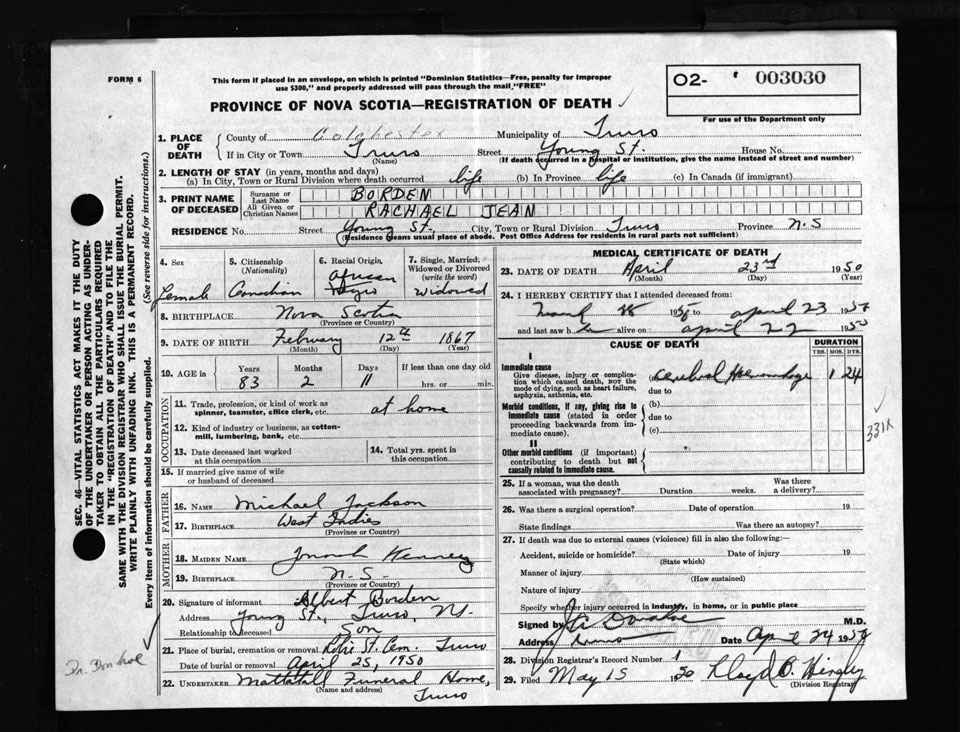 FORM 6
This form if placed in an envelope, on which is printed "Dominion Statistics—Free, penalty for improper
use $300," and properly addressed will pass through the mail, "FREE"
O2- 003030
For use of the Department only
PROVINCE OF NOVA SCOTIA—REGISTRATION OF DEATH
1. PLACE OF DEATH
County of Colchester Municipality of Truro
If in City or Town Truro Street Young St. House No.
(Name) (If death occurred in a hospital or institution, give the name instead of street and number)
2. LENGTH OF STAY (in years, months and days)
(a) In City, Town or Rural Division where death occurred life (b) In Province life (c) In Canada (if immigrant)
3. PRINT NAME OF DECEASED
Surname or Last Name BORDEN
All Given or Christian Names RACHAEL JEAN
RESIDENCE No. Street Young St. City, Town or Rural Division Truro Province N.S
(Residence means usual place of abode. Post Office Address for residents in rural parts not sufficient)
4. Sex Female
5. Citizenship (Nationality) Canadian
6. Racial Origin African Negro
7. Single, Married, Widowed or Divorced (write the word) Widowed
8. BIRTHPLACE Nova Scotia
(Province or Country)
9. DATE OF BIRTH February 12th 1867
(Month) (Day) (Year)
10. AGE in Years Months Days If less than one day old
83 2 11 hrs. or min.
OCCUPATION
11. Trade, profession, or kind of work as
spinner, teamster, office clerk, etc. at home
12. Kind of industry or business, as cotton-
mill, lumbering, bank, etc.
13. Date deceased last worked
at this occupation
14. Total yrs. spent in
this occupation
15. If married give name of wife
or husband of deceased
FATHER
16. Name Michael Jackson
17. Birthplace West Indies
(Province or Country)
MOTHER
18. Maiden Name
19. Birthplace N.S.
(Province or Country)
20. Signature of informant Albert Borden
Address Young St., Truro, N.S.
Relationship to deceased Son
21. Place of burial, cremation or removal Robie St. Cem. Truro
Date of burial or removal April 25, 1950
22. Undertaker Mattatall Funeral Home,
(Name and address) Truro
MEDICAL CERTIFICATE OF DEATH
23. DATE OF DEATH April 23rd 1950
(Month) (Day) (Year)
24. I HEREBY CERTIFY that I attended deceased from:
1950 to April 23 1950
and last saw h alive on April 22 1950
CAUSE OF DEATH
DURATION
YRS. MOS. DYS.
I
Immediate cause
Give disease, injury or complica-
tion which caused death, NOT the
mode of dying, such as heart failure,
asphyxia, asthenia, etc.
(a) Cerebral Hoemorrhage 1 24
due to
Morbid conditions, if any, giving rise to
immediate cause (stated in order
proceeding backwards from im-
mediate cause).
(b)
due to
(c)
II
Other morbid conditions (if important)
contributing to death but not
causally related to immediate cause.
331X
25. If a woman, was the death
associated with pregnancy? Duration weeks. Was there
a delivery?
26. Was there a surgical operation? Date of operation 19
State findings Was there an autopsy?
27. If death was due to external causes (violence) fill in also the following:—
Accident, suicide or homicide? Date of injury 19
(State which)
Manner of injury
(How sustained)
Nature of injury
Specify whether injury occurred in industry, in home, or in public place
Signed by Donahoe M.D.
Address Truro Date April 24 1950
28. Division Registrar's Record Number
29. Filed May 15 1950 Lloyd B. Hingley
(Division Registrar)
SEC. 46—VITAL STATISTICS ACT MAKES IT THE DUTY
OF THE UNDERTAKER OR PERSON ACTING AS UNDER-
TAKER TO OBTAIN ALL THE PARTICULARS REQUIRED
IN THE "REGISTRATION OF DEATH" AND TO FILE THE
SAME WITH THE DIVISION REGISTRAR WHO SHALL ISSUE THE BURIAL PERMIT.
WRITE PLAINLY WITH UNFADING INK. THIS IS A PERMANENT RECORD.
Every item of information should be carefully supplied. (See reverse side for instructions.)